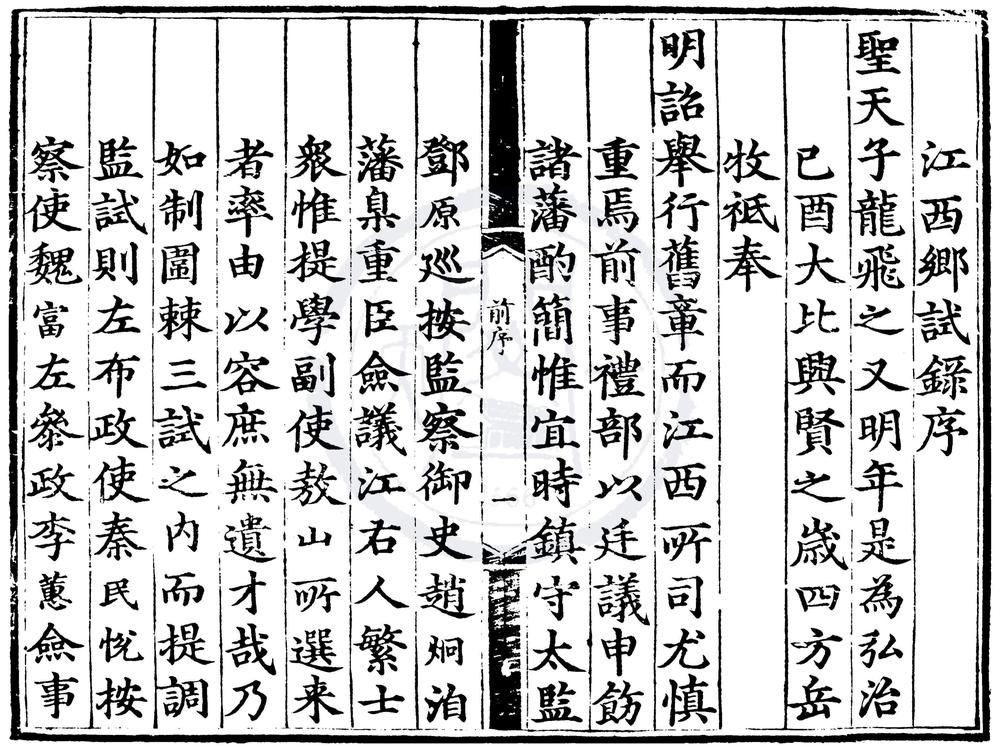 江西鄉試錄序
聖天子龍飛之又明年是為弘治
己酉大比興賢之歲四方岳
牧祇奉
明詔舉行舊章而江西所司尤慎
重焉前事禮部以廷議申飭
諸藩酌簡惟宜時鎮守太監
前序
一
鄧原巡按監察御史趙炯洎
藩臬重臣僉議江右人繁士
衆惟提學副使敖山所選来
者率由以容庶無遺才哉乃
如制圍棘三試之内而提調
監試則左布政使秦民悅按
察使魏富左叅政李蕙僉事